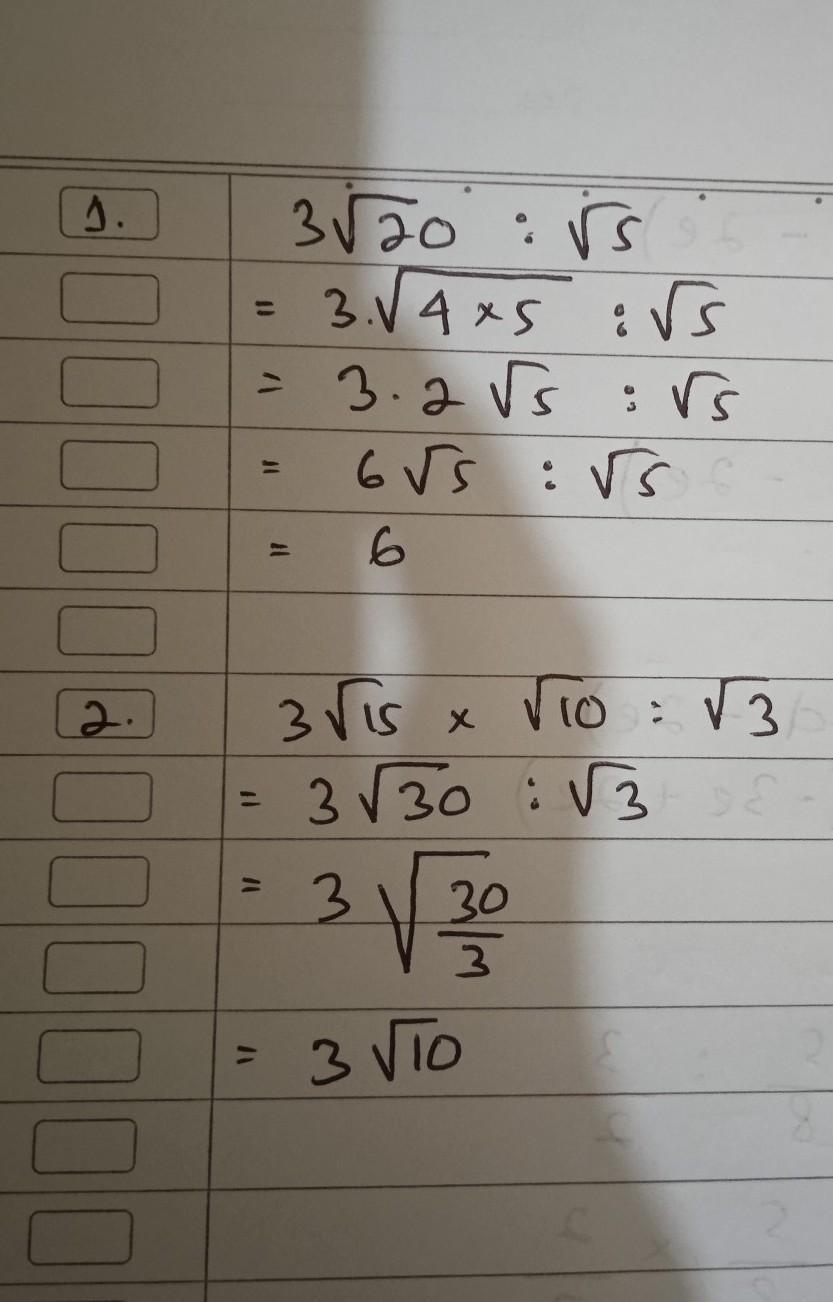 1. 3√20 : √5
= 3.√4 × 5 : √5
= 3 . 2 √5 : √5
= 6 √5 : √5
= 6
2. 3√15 × √10 : √3
= 3 √30 : √3
= 3 √30/3
= 3 √10